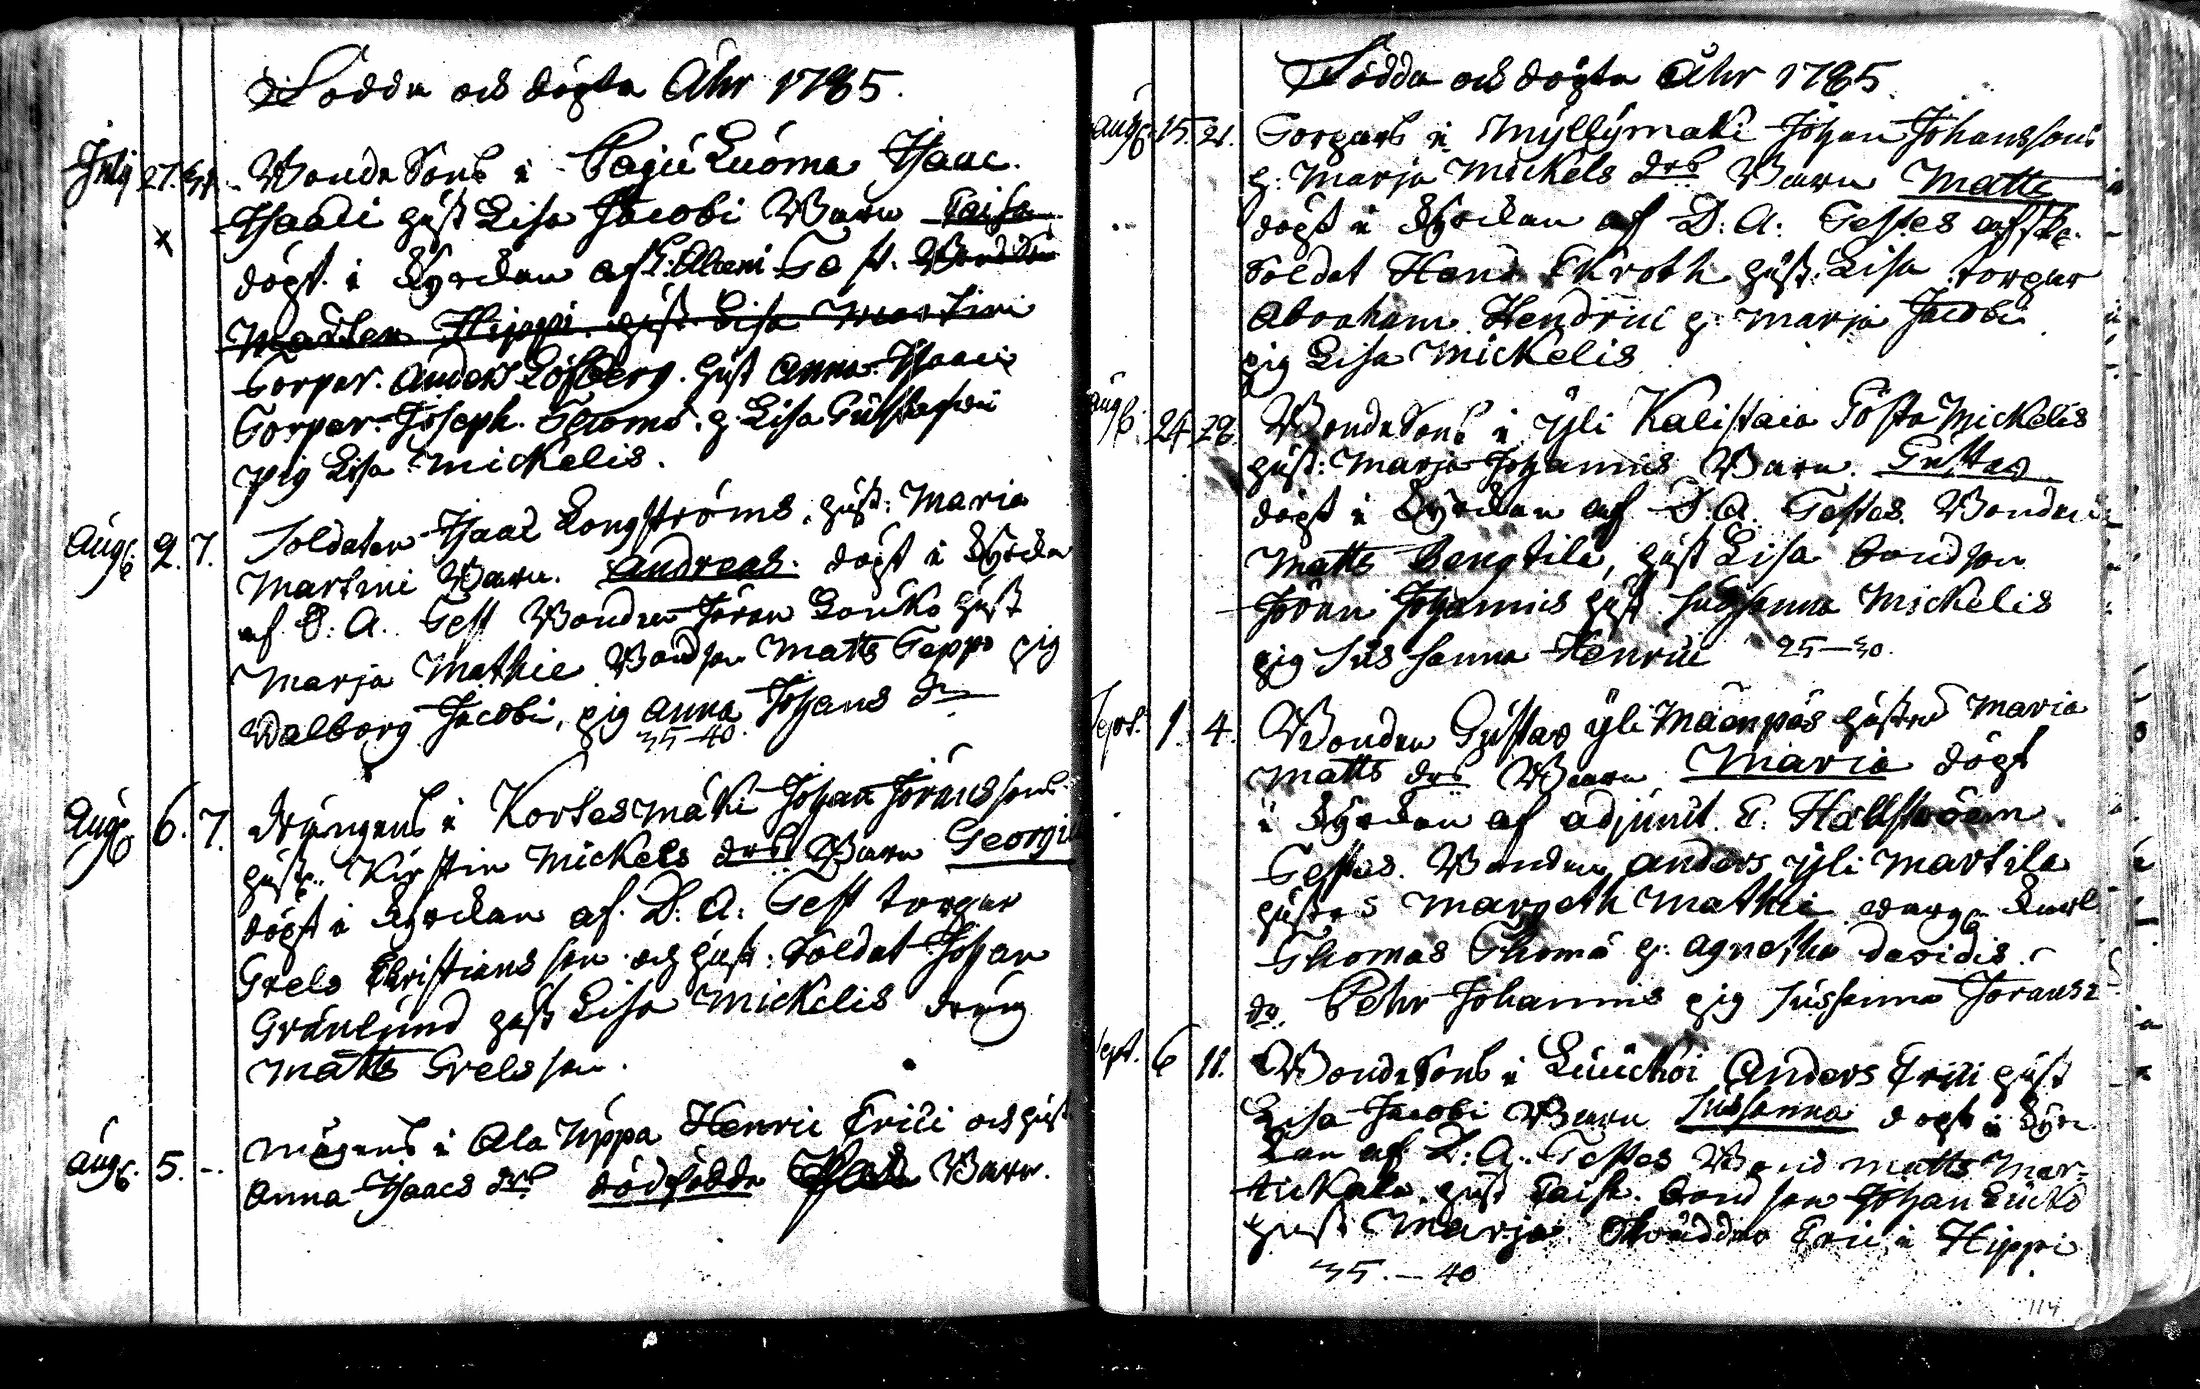 Födda och döpta Åhr 1785.
July 27. 31. Bonde Sons i Pajuluoma Isaac
Isaaci hust Lisa Jacobi Barn Caisa
x döpt i Kyrckan af Test.
Madten Hippi hust Lisa Martini
Torpar. Anders Löfberg. hust Anna Isaaci
Torpar Joseph Thoms. h. Lisa Gustafvi
pig Lisa Mickelis.
Aug. 2. 7. Soldaten Isaac Longströms hust: Maria
Martini Barn. Andreas. döpt i Kyrcka
af D: A: Test Bonden Jöran Louko hust
Marja Mathie Bondson Matts Seppe pig
Walborg Jacobi, pig Anna Johans dr
35–40.
Aug 6. 7. Drängens i Kortesmäki Johan Jöranssons
hust. Kirstin Mickels drs Barn Georgi
döpt i Kyrckan af D: A: Test torpar
Grels Christiansson och hust: Soldat Johan
Gränlund hust Lisa Mickelis dräng
Matts Grelsson.
Aug. 5. -. Mågens i Ala Uppa Henric Erici och hust
Anna Isaacs drs dödfödde Barn.
Födda och döpta Åhr 1785
Aug. 15. 21. Torpars i Myllymäki Johan Johanssons
h: Marja Mickels drs Barn Matts
döpt i Kyrckan af D: A: Testes afsk.
Soldat Hans Ekroth hust: Lisa torpar
Abraham Hendrici h: Marja Jacobi
pig Lisa Mickelis
Aug. 24 28. Bonde Sons i Yli Kalistaia Gösta Mickelis
hust: Marja Johannis Barn. Gustav
döpt i Kyrckan af D: A. Testes. Bonden
Matts Bengtila, hust Lisa bondson
Jöran Johannis hust Susanna Mickelis
pig Susanna Henrici 25–30.
Sept. 1. 4. Bonden Gustav Yli Mäenpäs hustru Maria
Matts drs Barn Maria döpt
i Kyrckan af adjunct. E. Hällström
Testes. Bonden Anders Yli Martila
hustru Margeth Mathiæ
Thomas Thomæ h. Agnetha Davidis.
do. Pehr Johannis pig Susanna Jörans
Sept. 6 11. Bonde Sons i Anders Erici hust
Lisa Jacobi Barn Susanna döpt i Kyrc
kan af D: A: Testes Bond Matts Mar-
tickala hust Caisa. bondson Johan
hust Marja. Skräddar Eric i Hippi
35.–40
114